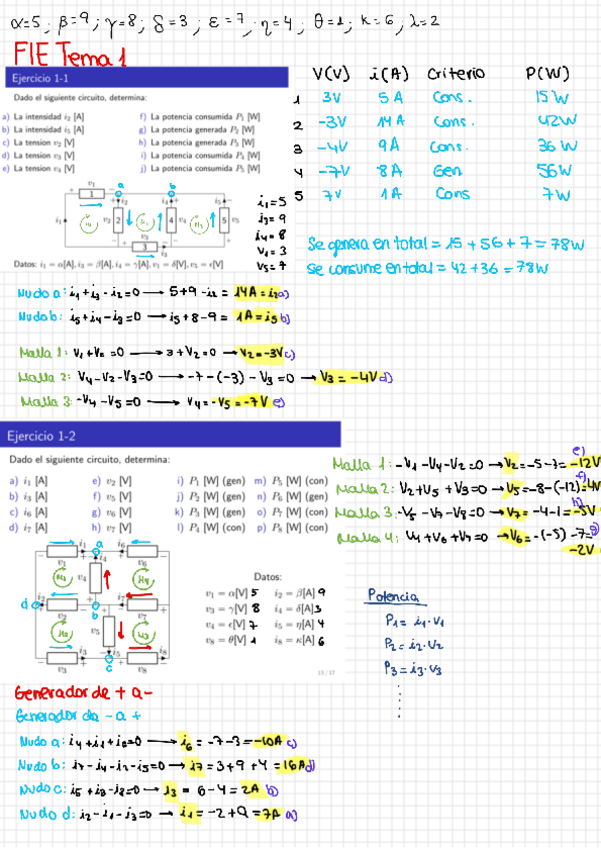 α=5 ; β=9 ; γ=8 ; δ=3 ; ε=7 ; η=4 ; θ=1 ; κ=6 ; λ=2
FIE Tema 1
Ejercicio 1-1
Dado el siguiente circuito, determina:
a) La intensidad i₂ [A]
b) La intensidad i₅ [A]
c) La tension v₂ [V]
d) La tension v₃ [V]
e) La tension v₄ [V]
f) La potencia consumida P₁ [W]
g) La potencia generada P₂ [W]
h) La potencia generada P₃ [W]
i) La potencia consumida P₄ [W]
j) La potencia consumida P₅ [W]
Datos: i₁ = α[A], i₃ = β[A], i₄ = γ[A], v₁ = δ[V], v₅ = ε[V]
i₁=5
i₃=9
i₄=8
V₁=3
V₅=7
V(V) i(A) Criterio P(W)
1 3V 5A Cons. 15W
2 -3V 14A Cons. 42W
3 -4V 9A Cons. 36W
4 -7V 8A Gen 56W
5 7V 1A Cons 7W
Se genera en total = 15+56+7=78W
Se consume en total = 42+36=78W
Nudo a: i₁+i₃-i₂=0 → 5+9-i₂ = 14A=i₂ a)
Nudo b: i₅+i₄-i₃=0 → i₅+8-9 = 1A=i₅ b)
Malla 1: V₁+V₂=0 → 3+V₂=0 → V₂=-3V c)
Malla 2: V₄-V₂-V₃=0 → -7-(-3)-V₃=0 → V₃=-4V d)
Malla 3: -V₄-V₅=0 → V₄=-V₅=-7V e)
Ejercicio 1-2
Dado el siguiente circuito, determina:
a) i₁ [A]
b) i₃ [A]
c) i₆ [A]
d) i₇ [A]
e) v₂ [V]
f) v₅ [V]
g) v₆ [V]
h) v₇ [V]
i) P₁ [W] (gen)
j) P₂ [W] (gen)
k) P₃ [W] (gen)
l) P₄ [W] (con)
m) P₅ [W] (con)
n) P₆ [W] (gen)
o) P₇ [W] (con)
p) P₈ [W] (con)
Datos:
v₁ = α[V] 5 i₂ = β[A] 9
v₃ = γ[V] 8 i₄ = δ[A] 3
v₄ = ε[V] 7 i₅ = η[A] 4
v₈ = θ[V] 1 i₈ = κ[A] 6
13 / 17
Malla 1: -V₁-V₄-V₂=0 → V₂=-5-7=-12V e)
Malla 2: V₂+V₅+V₃=0 → V₅=-8-(-12)=4V f)
Malla 3: -V₅-V₇-V₈=0 → V₇=-4-1=-5V h)
Malla 4: V₄+V₆+V₇=0 → V₆=-(-5)-7=-2V g)
Potencia
P₁ = i₁·V₁
P₂ = i₂·V₂
P₃ = i₃·V₃
Generador de + a -
Generador de - a +
Nudo a: i₄+i₁+i₆=0 → i₆=-7-3=-10A c)
Nudo b: i₇-i₄-i₂-i₅=0 → i₇=3+9+4=16A d)
Nudo c: i₅+i₃-i₈=0 → i₃=6-4=2A b)
Nudo d: i₂-i₁-i₃=0 → i₁=-2+9=7A a)